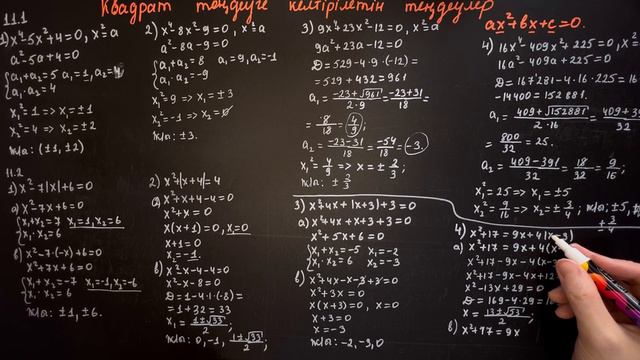 Квадрат теңдеуге келтірілетін теңдеулер
ax²+bx+c=0.
11.1
1) x⁴-5x²+4=0, x²=a
a²-5a+4=0
{a₁+a₂=5 a₁=1, a₂=4
a₁·a₂=4
x₁²=1 => x₁=±1
x₂²=4 => x₂=±2
Ж/а: (±1, ±2)
2) x⁴-8x²-9=0, x²=a
a²-8a-9=0
{a₁+a₂=8 a₁=9, a₂=-1
a₁·a₂=-9
x₁²=9 => x₁=±3
x₂²=-1 => x₂=∅
Ж/а: ±3.
3) 9x⁴+23x²-12=0, x²=a
9a²+23a-12=0
D=529-4·9·(-12)=
=529+432=961
a₁=(-23+√961)/(2·9)=(-23+31)/18=
=8/18=(4/9);
a₂=(-23-31)/18=-54/18=(-3.)
x₁²=4/9 => x=±2/3;
Ж/а: ±2/3
4) 16x⁴-409x²+225=0, x²=
16a²-409a+225=0
D=167281-4·16·225=16
-14400=152881.
a₁=(409+√152881)/(2·16)=(409+39
32
=800/32=25.
a₂=(409-391)/32=18/32=9/16;
x₁²=25 => x₁=±5
x₂²=9/16 => x₂=±3/4; Ж/а: ±5,
±3/4
11.2
1) x²-7|x|+6=0
а) x²-7x+6=0
{x₁+x₂=7 x₁=1, x₂=6
x₁·x₂=6
в) x²-7·(-x)+6=0
x²+7x+6=0
{x₁+x₂=-7 x₁=-1, x₂=-6
x₁·x₂=6
Ж/а: ±1, ±6.
2) x²+|x+4|=4
а) x²+x+4-4=0
x²+x=0
x(x+1)=0, x=0
x+1=0
x=-1.
в) x²-x-4-4=0
x²-x-8=0
D=1-4·1·(-8)=
=1+32=33
x₁=(1±√33)/2;
Ж/а: 0, -1, (1±√33)/2;
3) x²+4x+|x+3|+3=0
а) x²+4x+x+3+3=0
x²+5x+6=0
{x₁+x₂=-5 x₁=-2
x₁·x₂=6 x₂=-3
в) x²+4x-x-3+3=0
x²+3x=0
x(x+3)=0, x=0
x+3=0
x=-3
Ж/а: -2, -3, 0
4) x²+17=9x+4|x-3|
а) x²+17=9x+4(x-
x²+17-9x-4(x-3
x²+17-9x-4x+12
x²-13x+29=0
D=169-4·29=
x=(13±√53)/2;
в) x²+17=9x